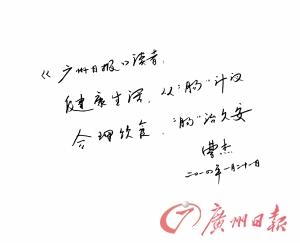 《广州日报》读者:
健康生活,从“肠”计议
合理饮食,“肠”治久安
曹杰
二〇一〇年一月二十一日
廣州日報